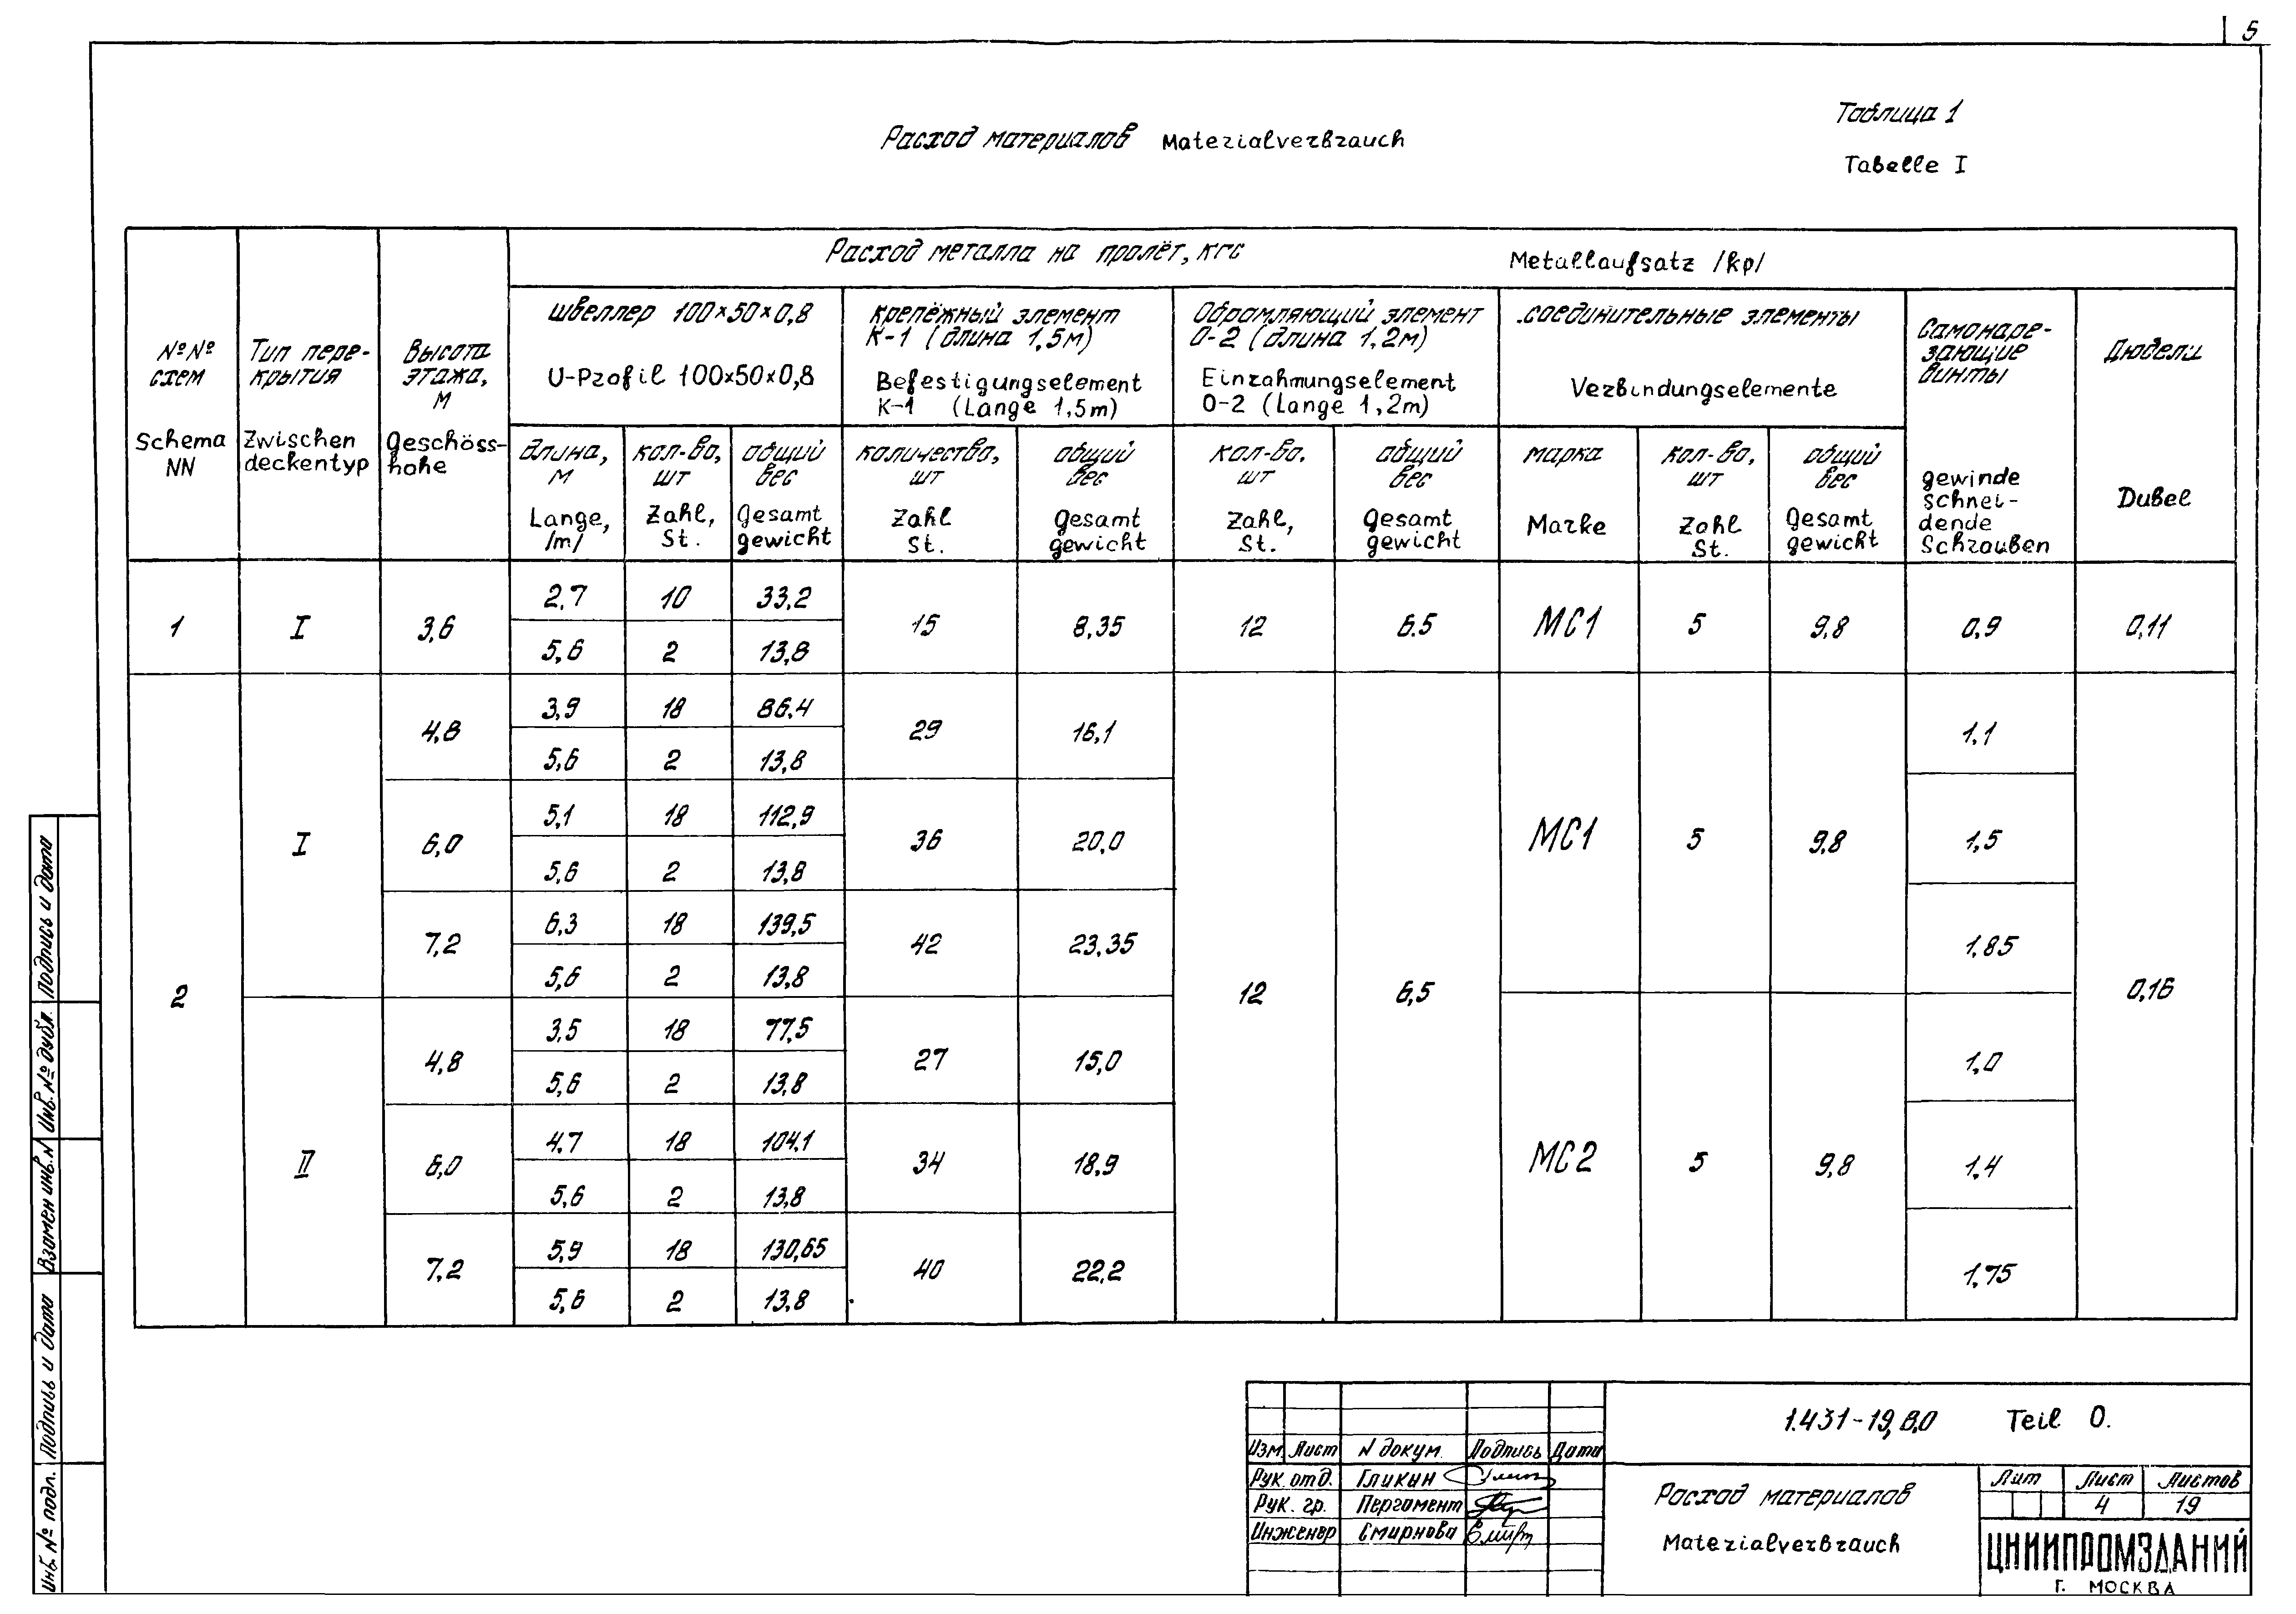 5
Таблица 1
Расход материалов Materialverbrauch
Tabelle I
Расход металла на пролёт, кгс Metallaufsatz /kp/
№№
схем
Schema
NN
Тип пере-
крытия
Zwischen
deckentyp
Высота
этажа,
м
Geschöss-
hohe
швеллер 100×50×0,8
U-Profil 100×50×0,8
крепёжный элемент
К-1 (длина 1,5м)
Befestigungselement
K-1 (Lange 1,5m)
Обрамляющий элемент
О-2 (длина 1,2м)
Einrahmungselement
O-2 (Lange 1,2m)
соединительные элементы
Verbindungselemente
Самонаре-
зающие
винты
gewinde
schnei-
dende
Schrauben
Дюбели
Dubel
длина,
м
Lange,
/m/
кол-во,
шт
Zahl,
St.
общий
вес
Gesamt
gewicht
количество,
шт
Zahl
St.
общий
вес
Gesamt
gewicht
кол-во,
шт
Zahl,
St.
общий
вес
Gesamt
gewicht
марка
Marke
кол-во,
шт
Zahl
St.
общий
вес
Gesamt
gewicht
1 I 3,6 2,7 10 33,2 15 8,35 12 6.5 МС1 5 9,8 0,9 0,11
5,6 2 13,8
2 I 4,8 3,9 18 86,4 29 16,1 12 6,5 МС1 5 9,8 1,1 0,16
5,6 2 13,8
6,0 5,1 18 112,9 36 20,0 1,5
5,6 2 13,8
7,2 6,3 18 139,5 42 23,35 1,85
5,6 2 13,8
II 4,8 3,5 18 77,5 27 15,0 МС2 5 9,8 1,0
5,6 2 13,8
6,0 4,7 18 104,1 34 18,9 1,4
5,6 2 13,8
7,2 5,9 18 130,65 40 22,2 1,75
5,6 2 13,8
Подпись и дата
Инв. № дубл.
Взамен инв. №
Подпись и дата
Инв. № подл.
1.431-19, В.0 Teil 0.
Изм. Лист N докум. Подпись Дата
Рук. отд. Гликин
Рук. гр. Пергамент
Инженер Смирнова
Расход материалов
Materialverbrauch
Лит Лист Листов
4 19
ЦНИИПРОМЗДАНИЙ
Г. МОСКВА